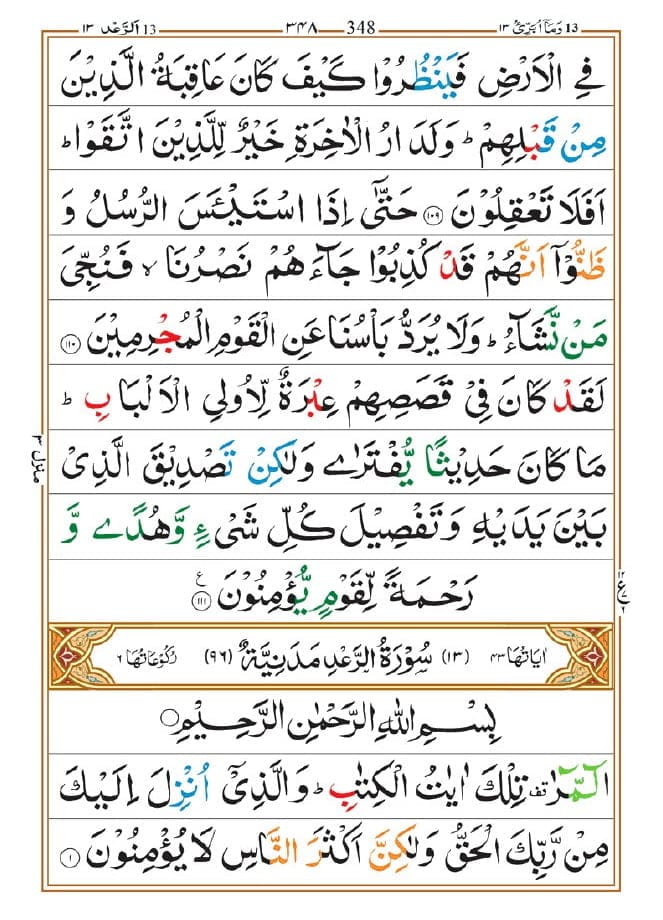 ١٣ اَلرَّعْد 13 ٣٤٨ 348 ١٣ وَمَآ اُبَرِّئُ 13
فِي الْاَرْضِ فَيَنْظُرُوْا كَيْفَ كَانَ عَاقِبَةُ الَّذِيْنَ
مِنْ قَبْلِهِمْ ؕ وَلَدَارُ الْاٰخِرَةِ خَيْرٌ لِّلَّذِيْنَ اتَّقَوْا ؕ
اَفَلَا تَعْقِلُوْنَ ۝١٠٩ حَتّٰۤى اِذَا اسْتَيْـَٔسَ الرُّسُلُ وَ
ظَنُّوْۤا اَنَّهُمْ قَدْ كُذِبُوْا جَآءَهُمْ نَصْرُنَا ۙ فَنُجِّيَ
مَنْ نَّشَآءُ ؕ وَلَا يُرَدُّ بَاْسُنَا عَنِ الْقَوْمِ الْمُجْرِمِيْنَ ۝١١٠
لَقَدْ كَانَ فِيْ قَصَصِهِمْ عِبْرَةٌ لِّاُولِي الْاَلْبَابِ ؕ
مَا كَانَ حَدِيْثًا يُّفْتَرٰى وَلٰكِنْ تَصْدِيْقَ الَّذِيْ
بَيْنَ يَدَيْهِ وَتَفْصِيْلَ كُلِّ شَيْءٍ وَّهُدًى وَّ
رَحْمَةً لِّقَوْمٍ يُّؤْمِنُوْنَ ۝١١١ ع
منزل ٣
١٢ ع ٦
اٰيَاتُهَا ٤٣ (١٣) سُوْرَةُ الرَّعْدِ مَدَنِيَّةٌ (٩٦) رُكُوْعَاتُهَا ٦
بِسْمِ اللّٰهِ الرَّحْمٰنِ الرَّحِيْمِ ۝
الٓمّٓرٰ ۟ تِلْكَ اٰيٰتُ الْكِتٰبِ ؕ وَالَّذِيْۤ اُنْزِلَ اِلَيْكَ
مِنْ رَّبِّكَ الْحَقُّ وَلٰكِنَّ اَكْثَرَ النَّاسِ لَا يُؤْمِنُوْنَ ۝١